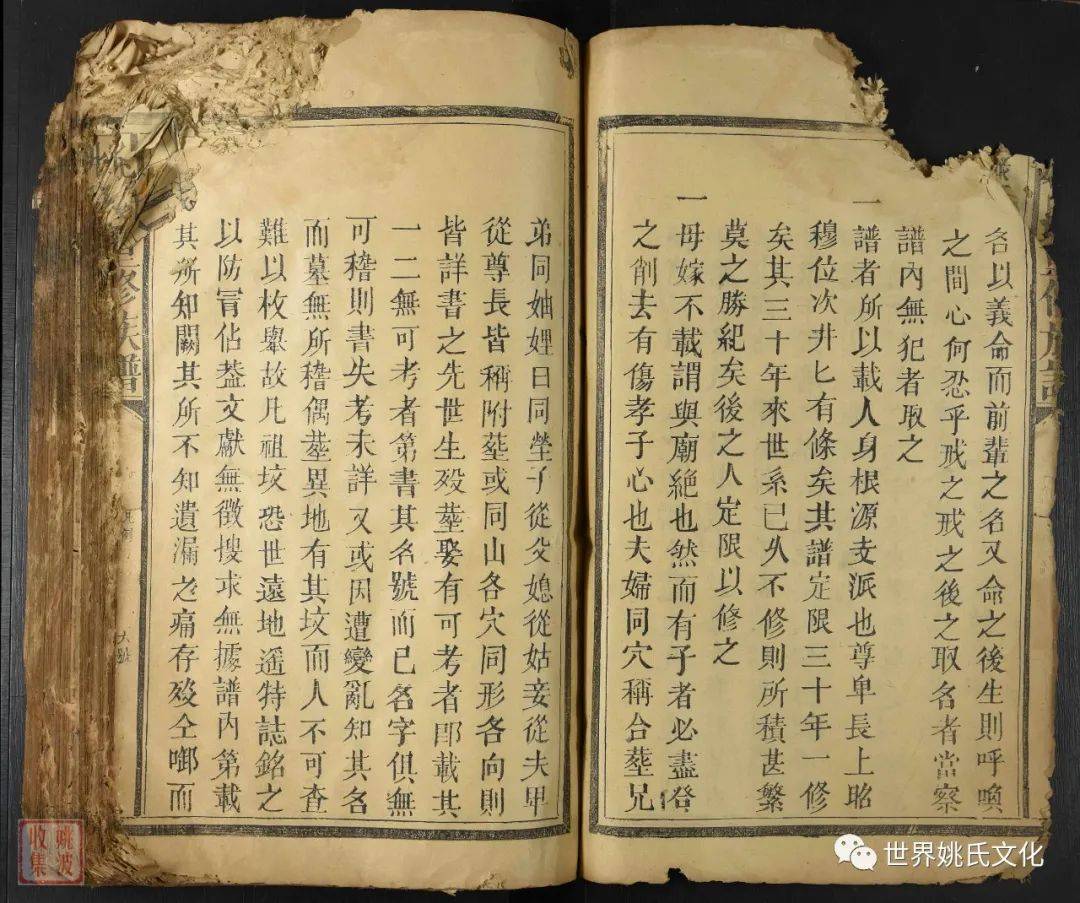 各以義命而前輩之名又命之後生則呼喚
之間心何忍乎戒之戒之後之取名者當察
譜內無犯者取之
一譜者所以載人身根源支派也尊卑長上昭
穆位次井匕有條矣其譜定限三十年一修
矣其三十年來世系已久不修則所積甚繁
莫之勝紀矣後之人定限以修之
一母嫁不載謂與廟絕也然而有子者必盡登
之削去有傷孝子心也夫婦同穴稱合塟兄
弟同妯娌曰同塋子從父媳從姑妾從夫卑
從尊長皆稱附塟或同山各穴同形各向則
皆詳書之先世生歿塟娶有可考者即載其
一二無可考者第書其名號而已名字俱無
可稽則書失考未詳又或因遭變亂知其名
而墓無所稽偶塟異地有其坟而人不可查
難以枚舉故凡祖坟恐世遠地遥特誌銘之
以防冐佔葢文獻無徵搜求無據譜內第載
其所知闕其所不知遺漏之痛存歿仝啣而
修族譜
姚波
收集
世界姚氏文化